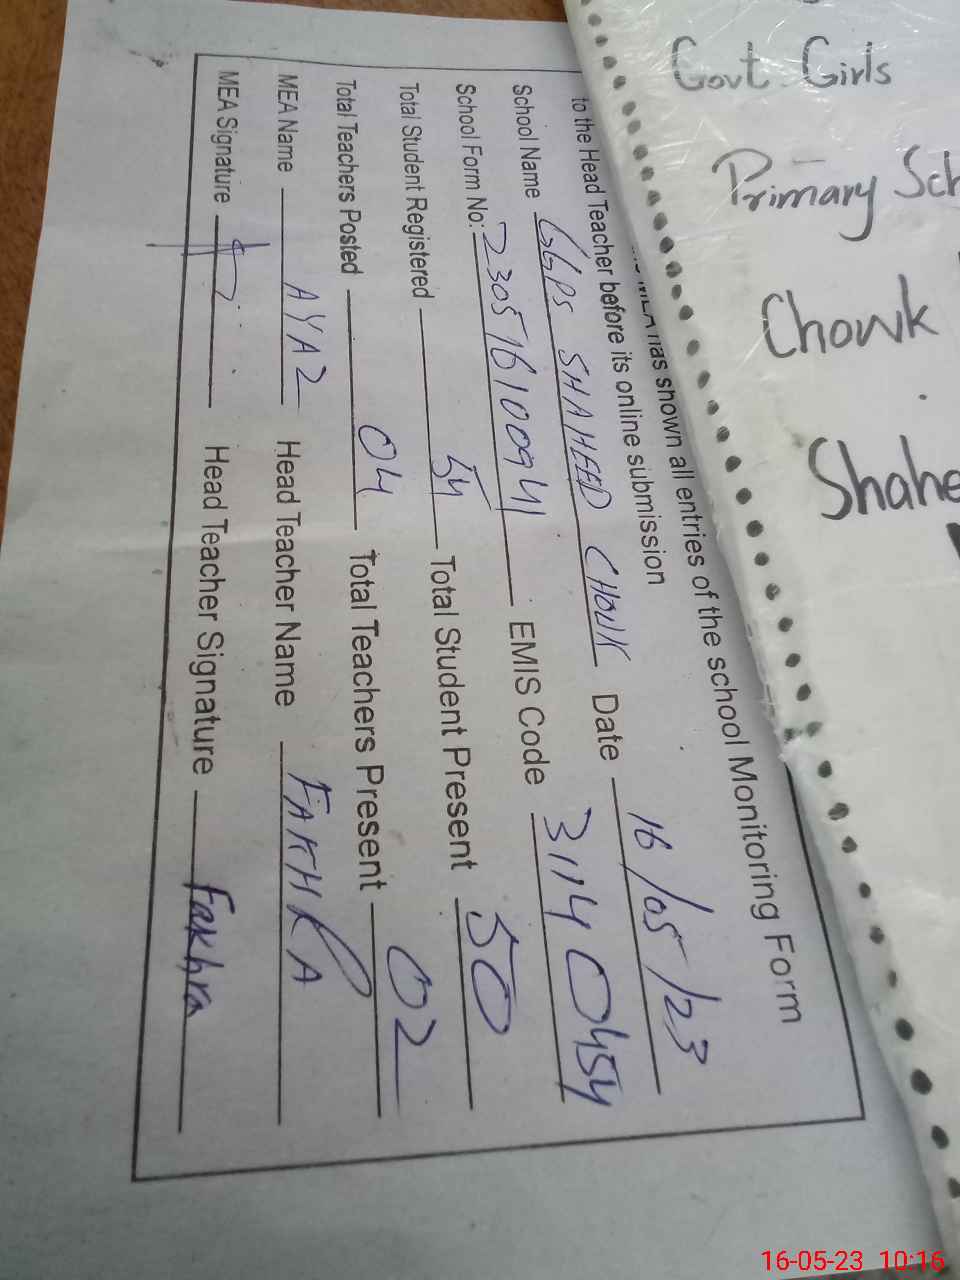 Govt Girls
Primary Sch
Chowk
Shahe
has shown all entries of the school Monitoring Form
to the Head Teacher before its online submission
School Name GGPS SHAHEED CHOWK Date 16/05/23
School Form No: 23051610094 EMIS Code 31140454
Total Student Registered 54 Total Student Present 50
Total Teachers Posted 04 Total Teachers Present 02
MEA Name AYAZ Head Teacher Name FAKHRA
MEA Signature Head Teacher Signature Fakhra
16-05-23 10:16